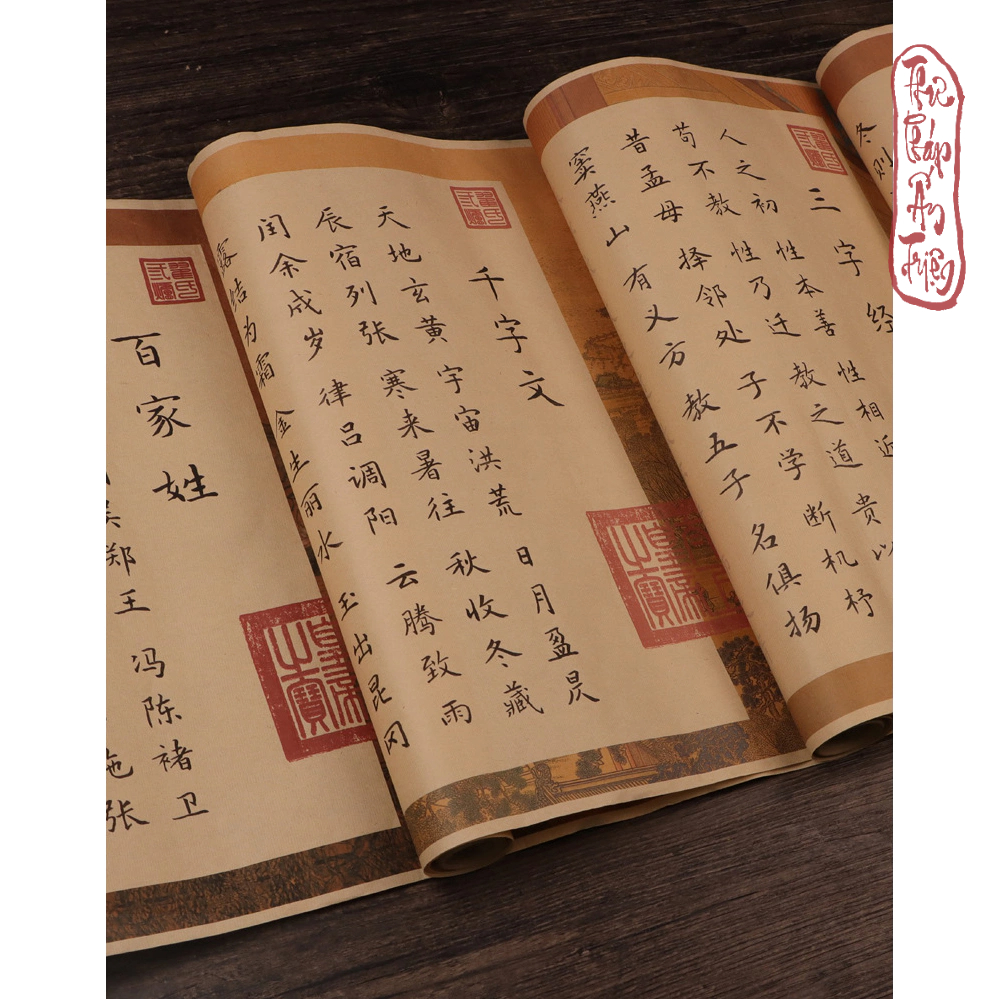 冬则
三字经
人之初 性本善 性相近
苟不教 性乃迁 教之道 贵以
昔孟母 择邻处 子不学 断机杼
窦燕山 有义方 教五子 名俱扬
千字文
天地玄黄 宇宙洪荒 日月盈昃
辰宿列张 寒来暑往 秋收冬藏
闰余成岁 律吕调阳 云腾致雨
露结为霜 金生丽水 玉出昆冈
百家姓
吴郑王 冯陈褚卫
施张